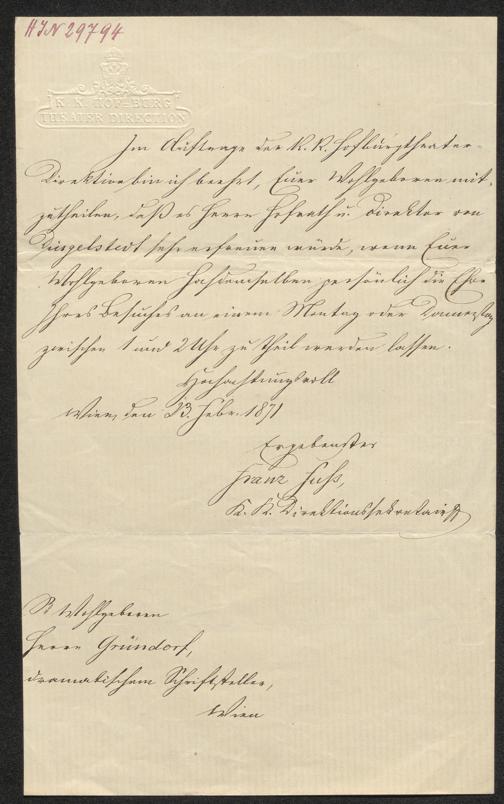 HIN 29794
K. K. HOF-BURG
THEATER DIRECTION
Im Auftrage der K. K. Hofburgtheater-
Direktion bin ich beehrt, Euer Wohlgeboren mit-
zutheilen, daß es Herrn Hofrath u. Direktor von
Dingelstedt sehr erfreuen würde, wenn Euer
Wohlgeboren Hochdemselben persönlich die Ehre
Ihres Besuches an einem Montag oder Donnerstag
zwischen 1 und 2 Uhr zu Theil werden lassen.
Hochachtungsvoll
Wien, den 23. Febr. 1871
Ergebenster
Franz
K. K. Direktionssekretair
Sr Wohlgeboren
Herrn Gründorf,
dramatischem Schriftsteller,
Wien